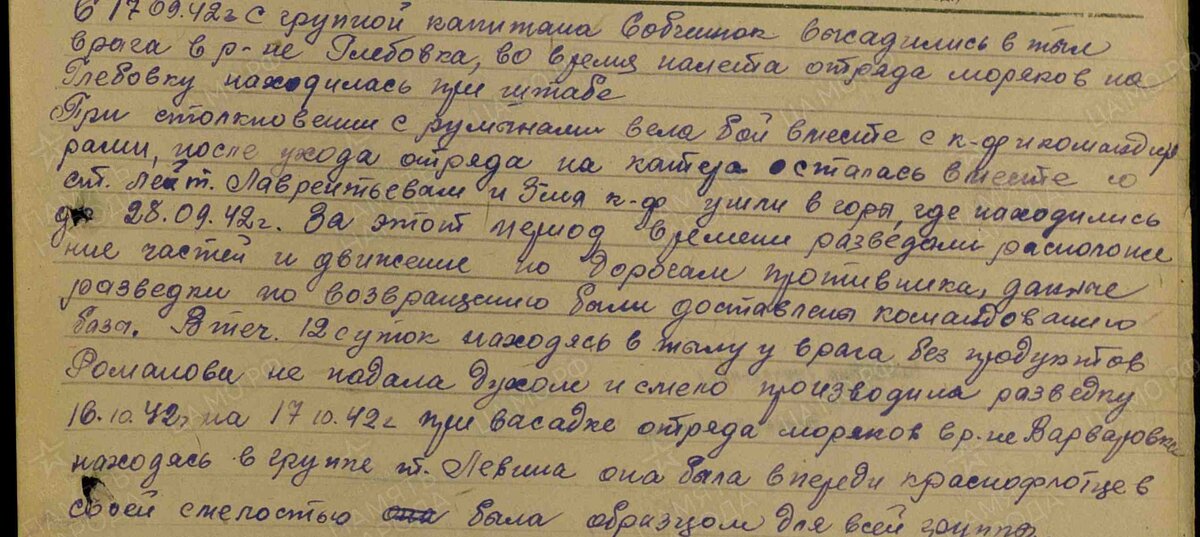 С 17.09.42г. с группой капитана Собченюк высадились в тыл
врага в р-не Глебовка, во время налета отряда моряков на
Глебовку находилась при штабе
При столкновении с румынами вела бой вместе с к-ф и команди
рами, после ухода отряда на катера осталась вместе со
ст. лейт. Лаврентьевым и 3мя к-ф ушли в горы, где находились
до 28.09.42г. За этот период времени разведали расположе
ние частей и движение по дорогам противника, данные
разведки по возвращению были доставлены командованию
базы. В теч. 12 суток находясь в тылу у врага без продуктов
Романова не падала духом и смело производила разведку
16.10.42г на 17.10.42г при васадке отряда моряков в р-не Варваровка
находясь в группе т. Левша она была впереди краснофлотцев
своей смелостью была образцом для всей группы